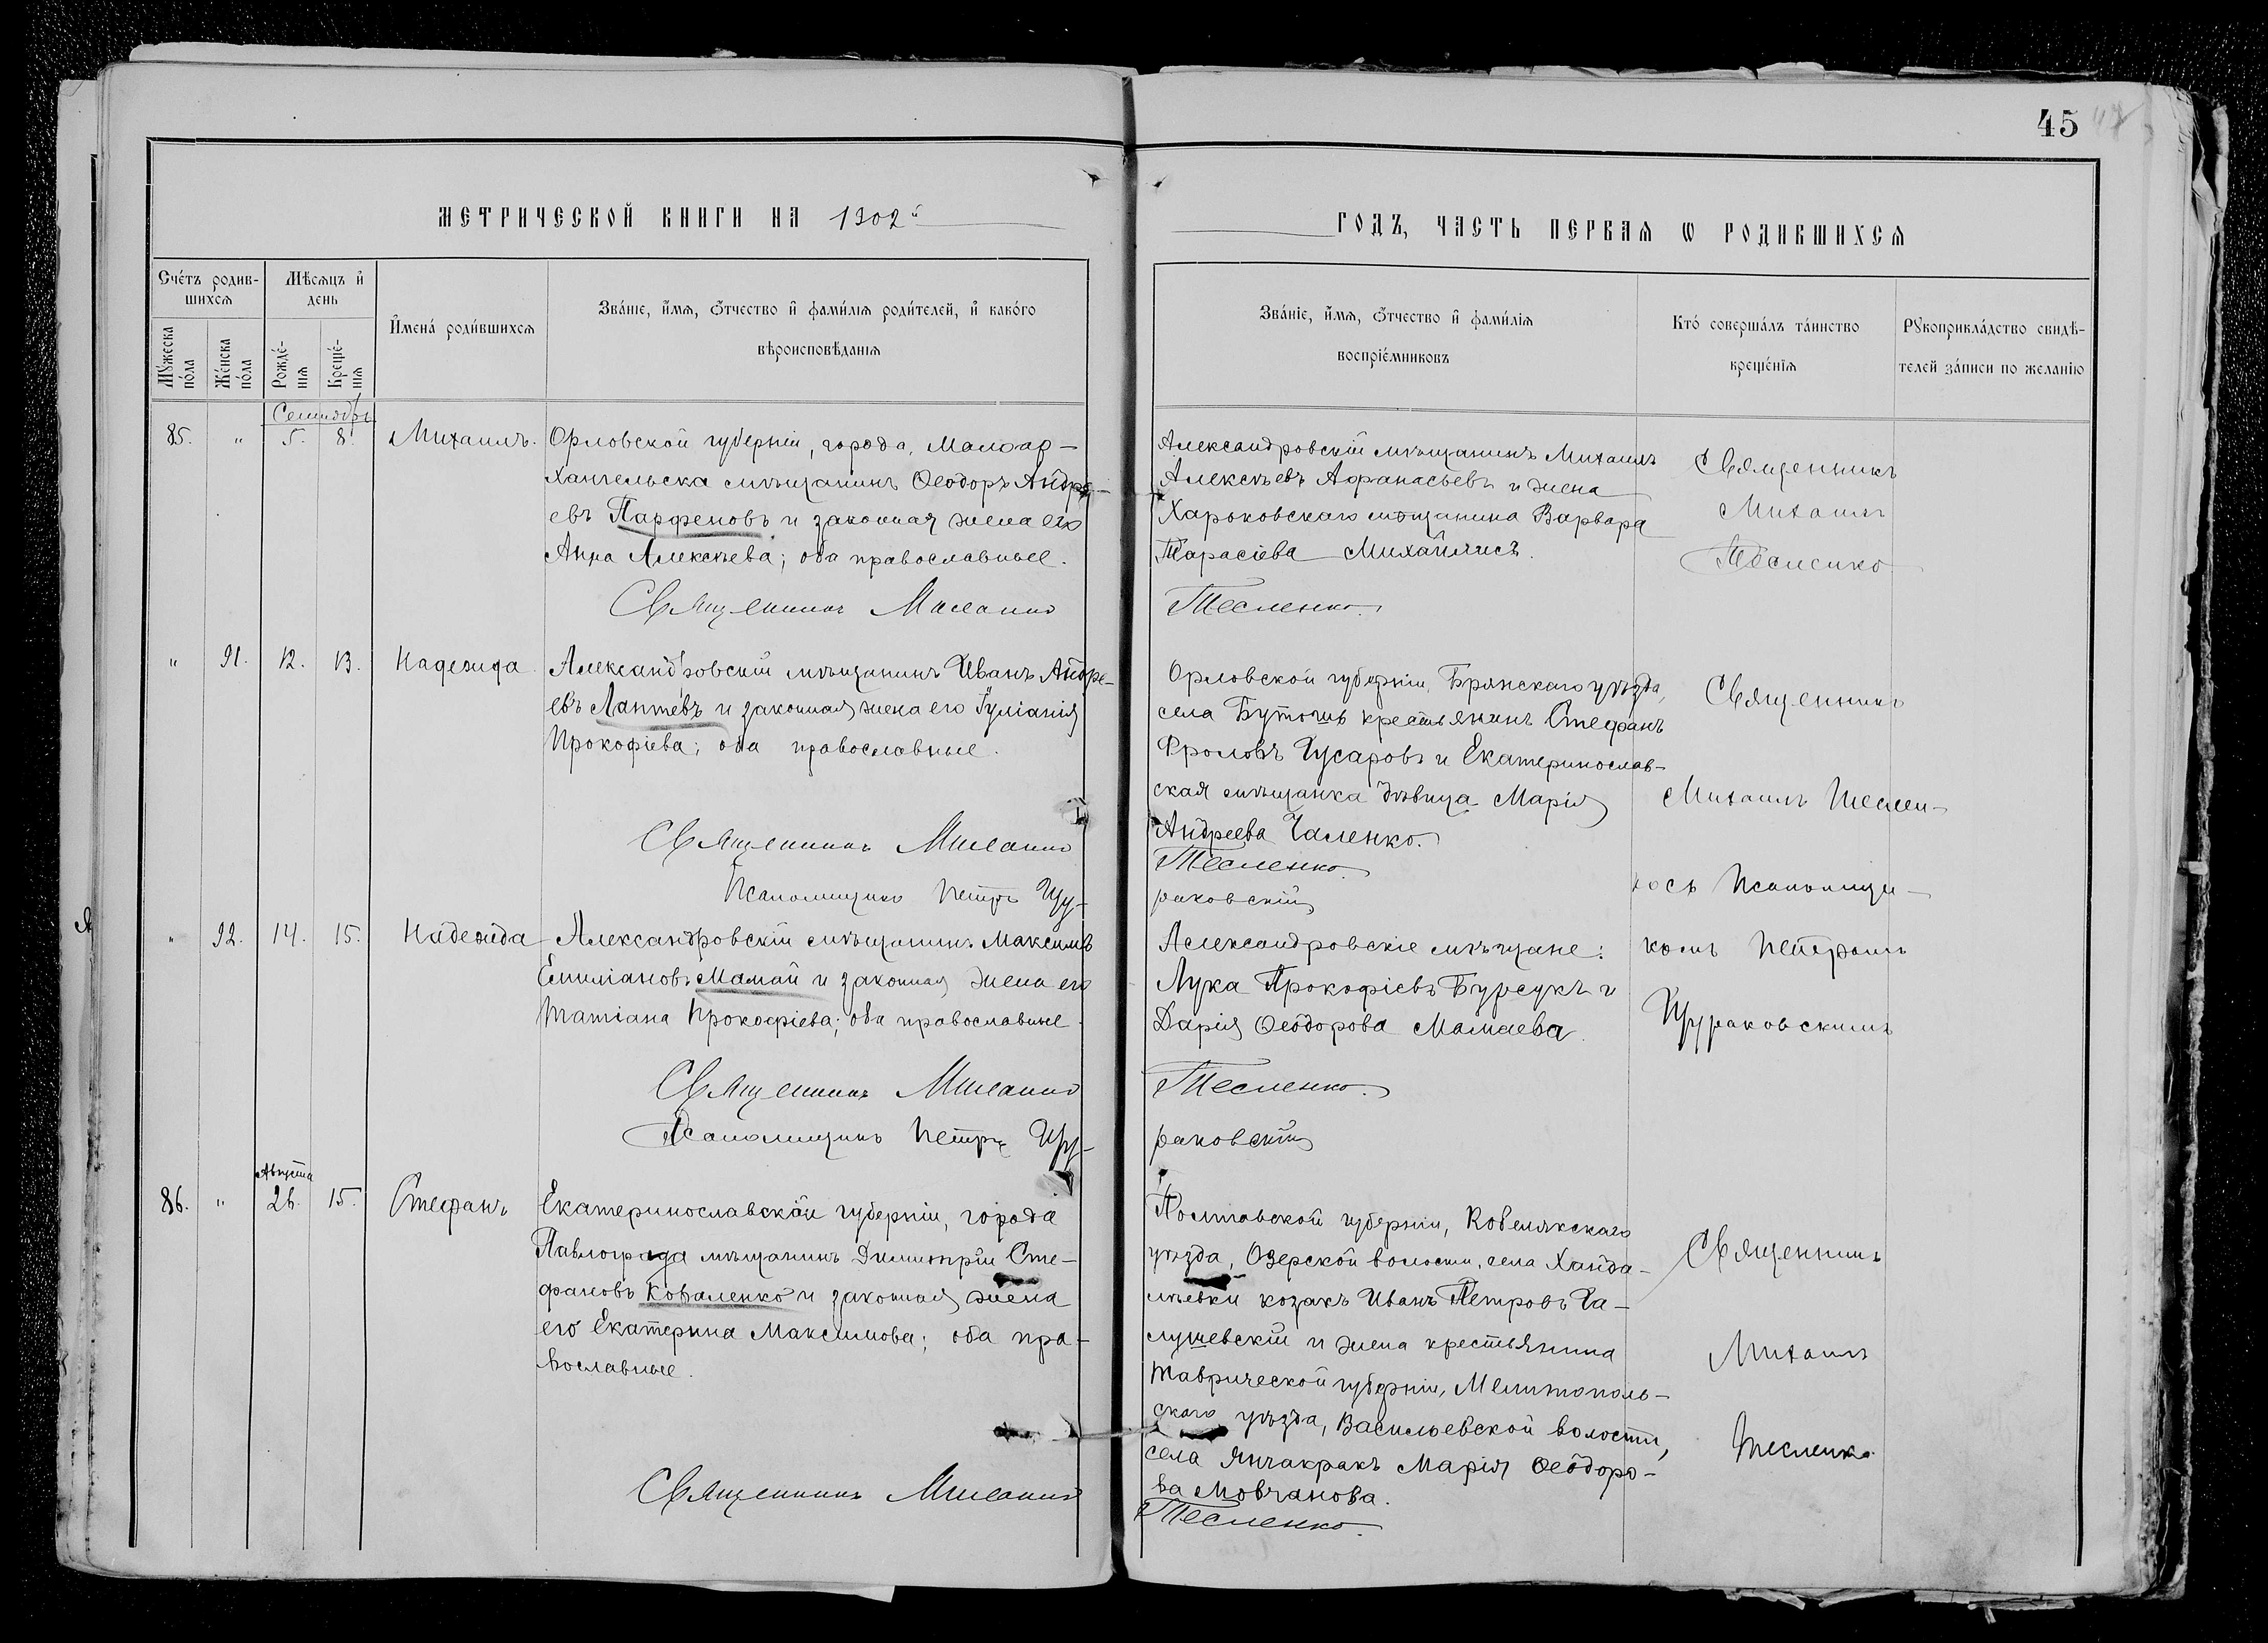 45
МЕТРИЧЕСКОЙ КНИГИ НА 1902й
ГОДЪ, ЧАСТЬ ПЕРВАЯ Ѡ РОДИВШИХСЯ
Счетъ родив-
шихся
Мужеска пола
Женска пола
Мѣсяцъ и
день
Рожде-
нія
Креще-
нія
Имена родившихся
Званіе, имя, отчество и фамилія родителей, и какого
вѣроисповѣданія
Званіе, имя, отчество и фамилія
воспріемниковъ
Кто совершалъ таинство
крещенія
Рукоприкладство свидѣ-
телей записи по желанію
Сентябрь
85. " 5. 8. Михаилъ.
Орловской губерніи, города, Малоар-
хангельска мѣщанинъ Ѳеодоръ Андре-
евъ Парфеновъ и законная жена его
Анна Алексѣева; оба православные.
Священникъ Михаилъ
Александровскій мѣщанинъ Михаилъ
Алексѣевъ Афанасьевъ и жена
Харьковскаго мѣщанина Варвара
Тарасіева
Тесленко.
Священникъ
Михаилъ
Тесленко
" 91. 12. 13. Надежда
Александровскій мѣщанинъ Иванъ Андре-
евъ Лаптевъ и законная жена его Іуліанія
Прокофіева; оба православные.
Священникъ Михаилъ
Псаломщикъ Петръ Щу-
Орловской губерніи, Брянскаго уѣзда,
села крестьянинъ Стефанъ
Фроловъ Гусаровъ и Екатеринослав-
ская мѣщанка дѣвица Марія
Андреева Галенко.
Тесленко.
раковскій
Священникъ
Михаилъ Теслен-
ко съ Псаломщи-
комъ Петромъ
Щураковскимъ
" 92. 14. 15. Надежда
Александровскій мѣщанинъ Максимъ
Емиліановъ Мамай и законная жена его
Татіана Прокофіева; оба православные.
Священникъ Михаилъ
Псаломщикъ Петръ Щу-
Александровскіе мѣщане:
Лука Прокофіевъ Бурсукъ и
Дарія Ѳеодорова Мамаева.
Тесленко.
раковскій
Августа
86. " 26. 15. Стефанъ
Екатеринославской губерніи, города
Павлограда мѣщанинъ Димитрій Сте-
фановъ Коваленко и законная жена
его Екатерина Максимова; оба пра-
вославные.
Священникъ Михаилъ
Полтавской губерніи, Кобелякскаго
уѣзда, Озерской волости, села Ханда-
лѣевки козакъ Иванъ Петровъ Га-
лушевскій и жена крестьянина
Таврической губерніи, Мелитополь-
скаго уѣзда, Васильевской волости,
села Янчакракъ Марія Ѳеодоро-
ва Мовчанова.
Тесленко.
Священникъ
Михаилъ
Тесленко